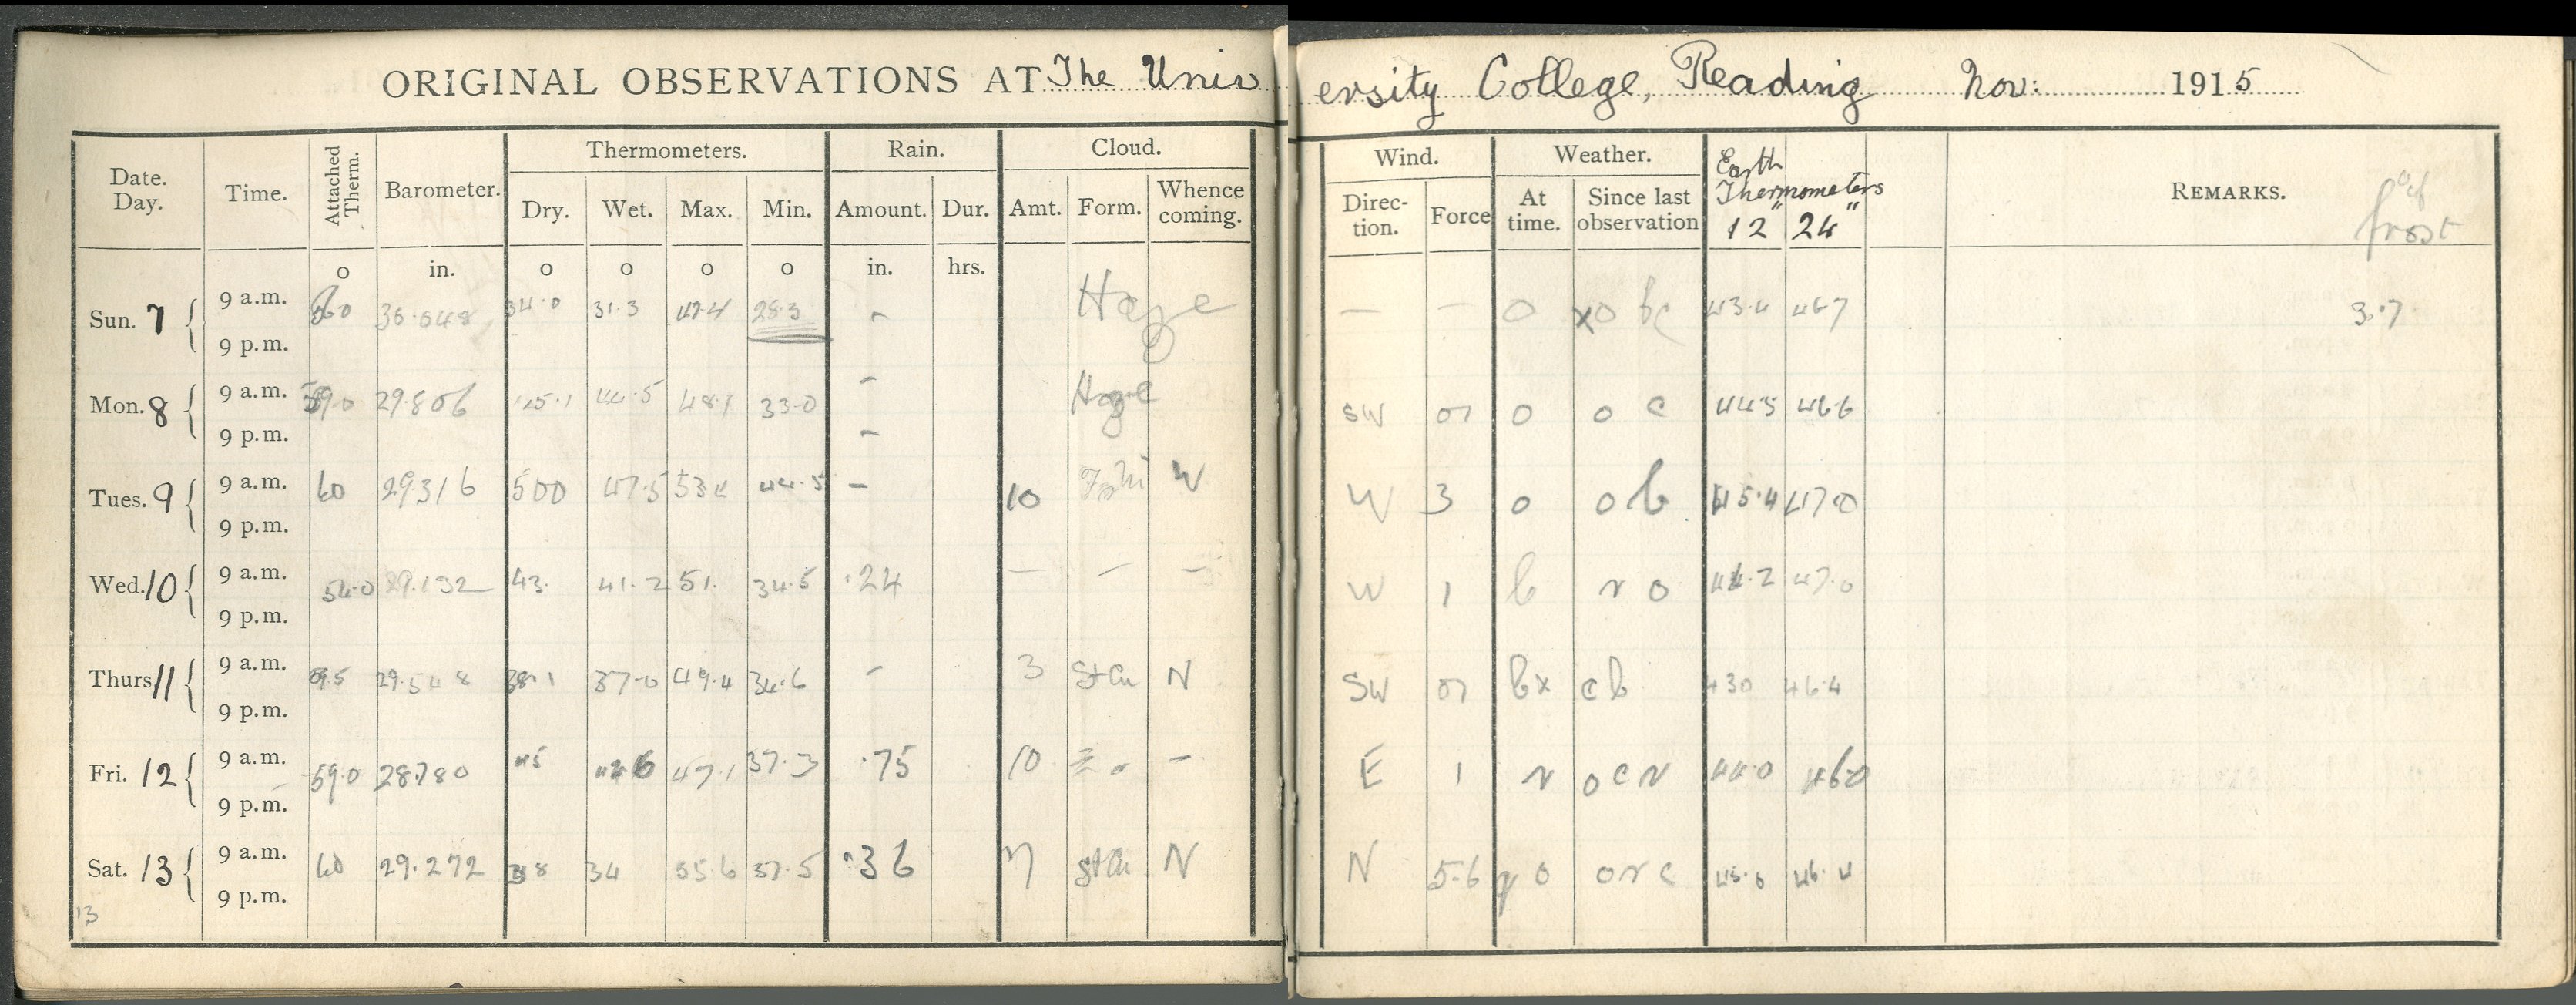 ORIGINAL OBSERVATIONS AT The University College, Reading Nov: 1915
Thermometers. Rain. Cloud. Wind. Weather. Earth Thermometers
Date. Day. Time. Attached Therm. Barometer. Dry. Wet. Max. Min. Amount. Dur. Amt. Form. Whence coming. Direc- tion. Force At time. Since last observation 12" 24" REMARKS. of frost
o in. o o o o in. hrs.
Sun. 7 9 a.m. 30.048 34.0 31.3 47.4 28.3 - Haze — — o xo bc 43.4 467 3.7
9 p.m.
Mon. 8 9 a.m. 59.0 29.806 45.1 44.5 48.1 33.0 - Haze SW 01 o o c 44.5 46.6
9 p.m. -
Tues. 9 9 a.m. 60 29316 500 47.5 534 44.5 - 10 W W 3 o o b 45.4 47.0
9 p.m.
Wed. 10 9 a.m. 54.0 29.132 43. 41.2 51. 34.5 .24 — — — W 1 b r o 44.2 47.0
9 p.m.
Thurs 11 9 a.m. 59.5 29.548 38.1 37.0 49.4 34.6 - 3 StCu N SW 01 bx c b 430 46.4
9 p.m.
Fri. 12 9 a.m. 59.0 28.780 45 446 47.1 37.3 .75 10 - E 1 r o c r 44.0 460
9 p.m.
Sat. 13 9 a.m. 60 29.272 38 34 55.6 37.5 .36 7 StCu N N 5-6 q o o r c 45.0 46.4
9 p.m.
13